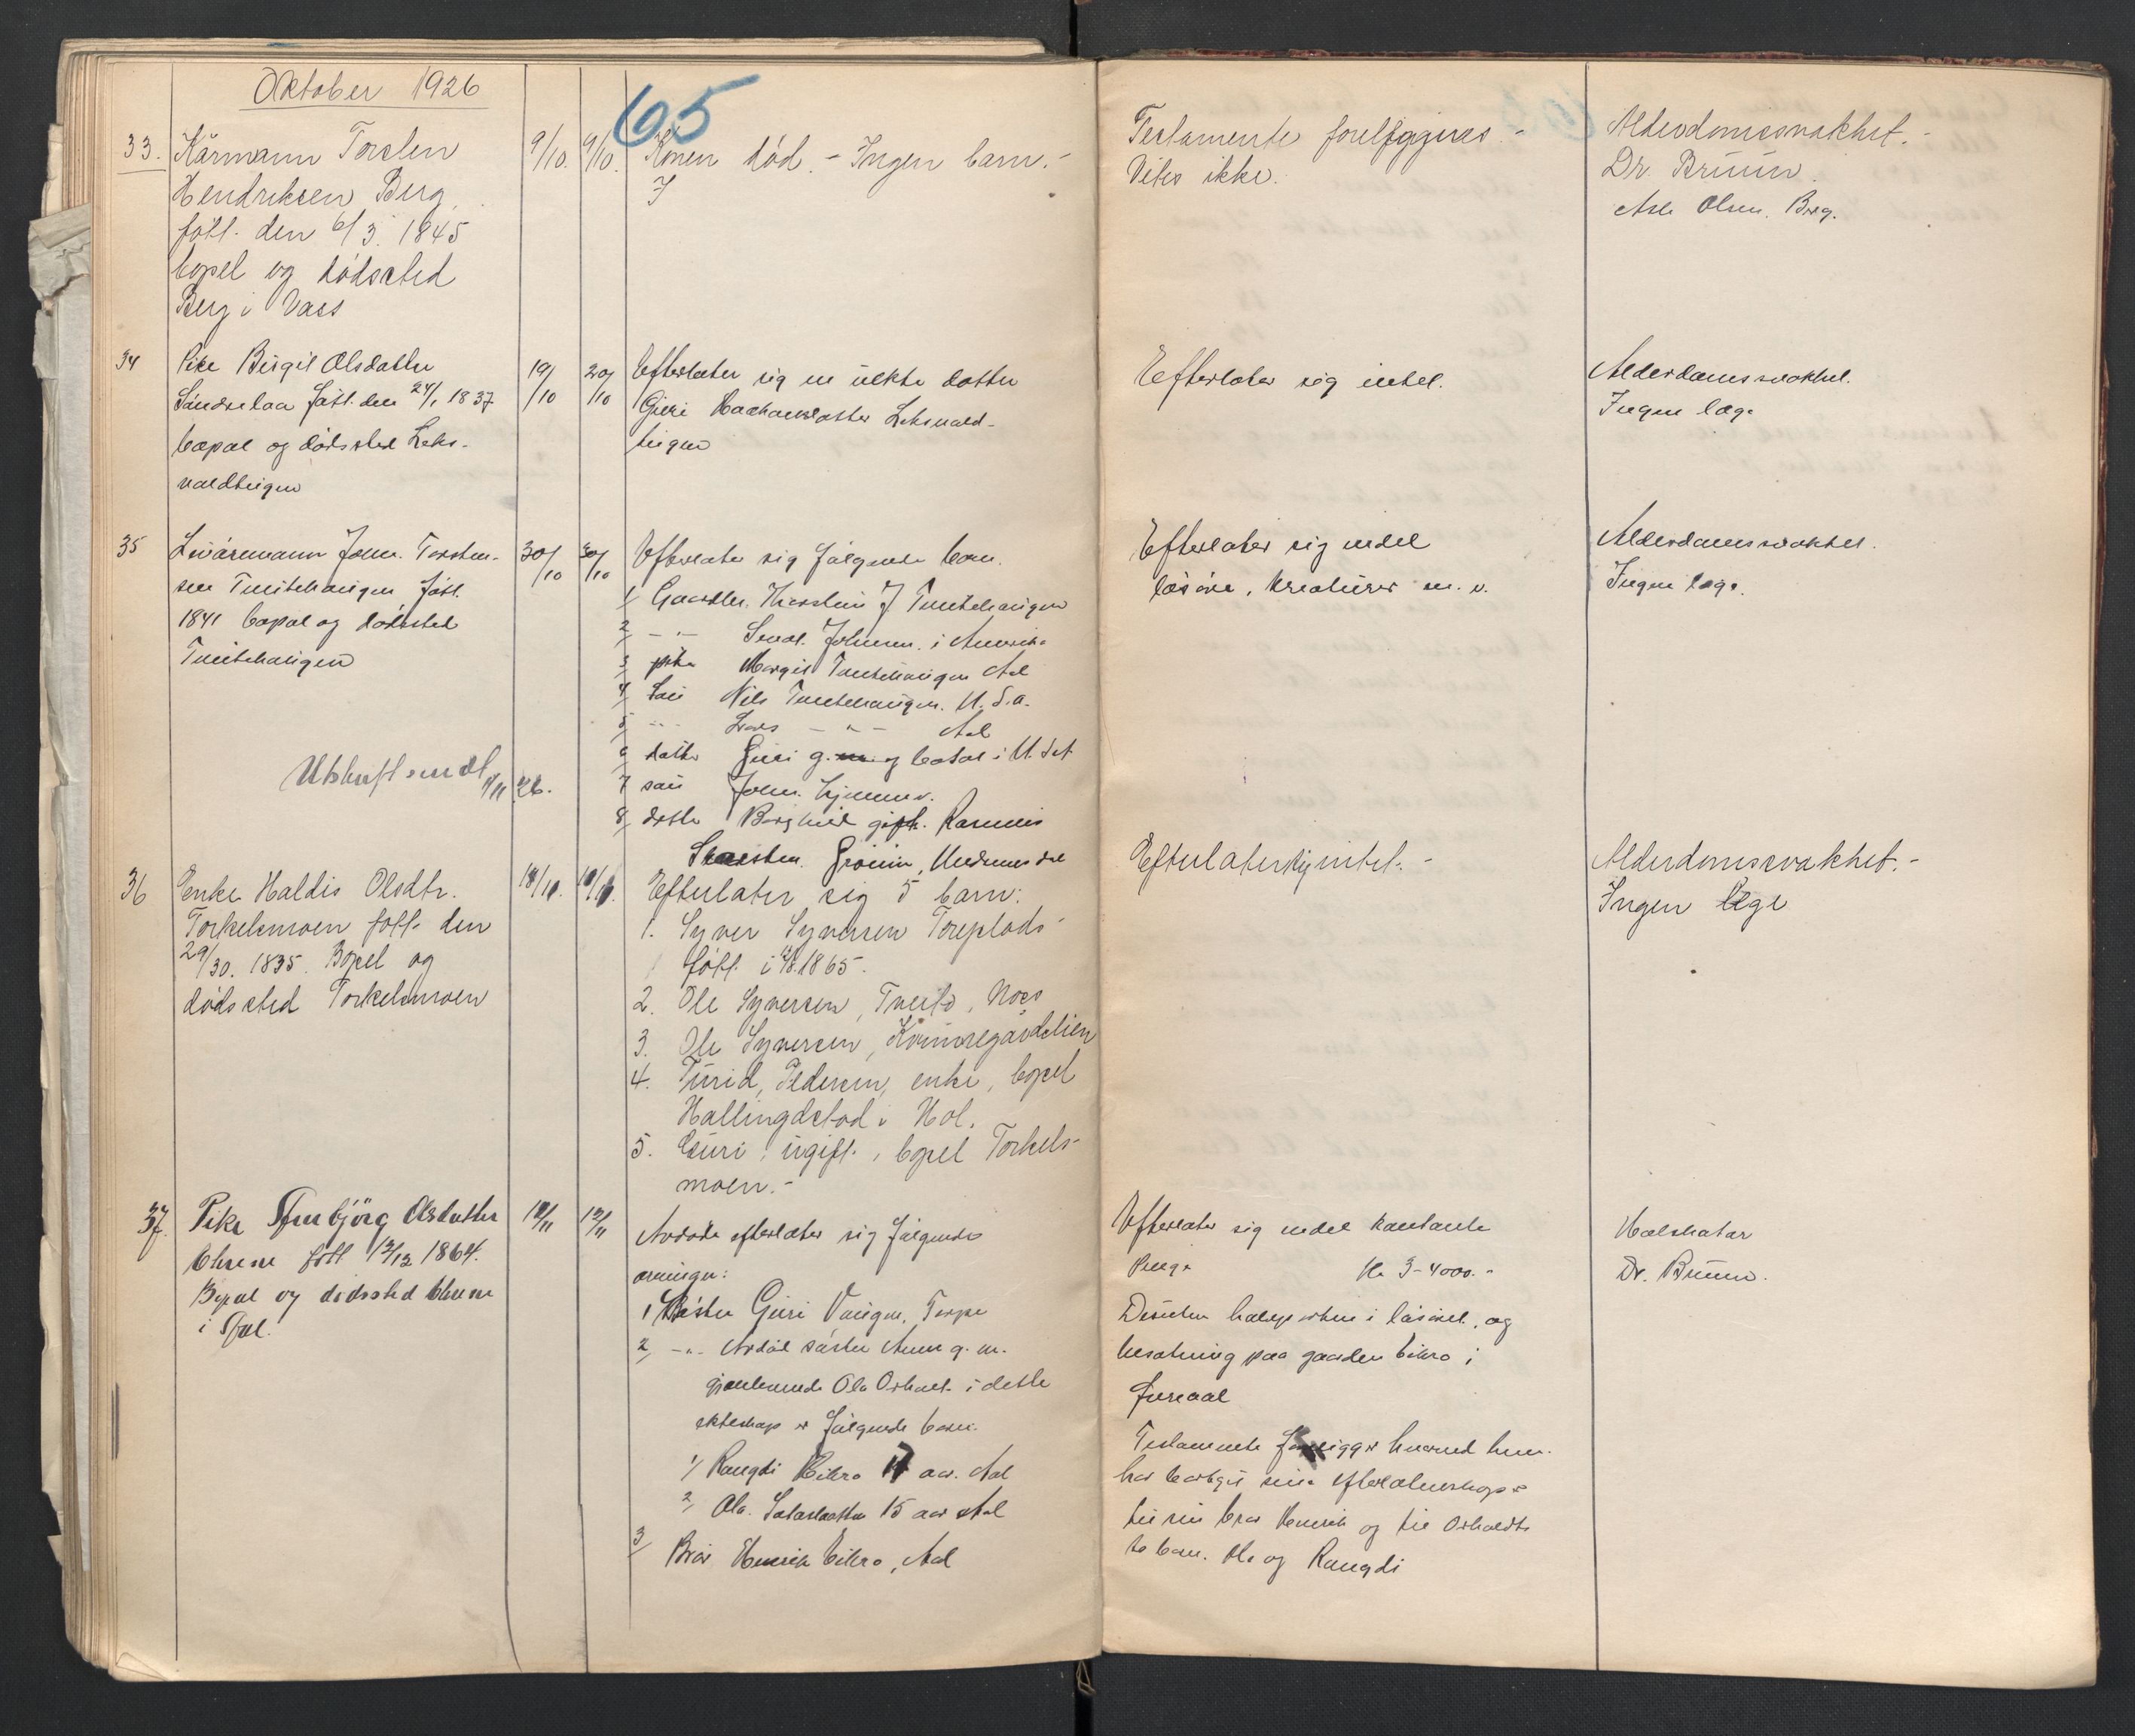 Oktober 1926
65
33. Kårmann Torsten
Hendriksen Berg
född. den 6/3. 1845
bopel og dødssted
Berg i Vass
9/10. 9/10.
Konen död. - Ingen barn. -
Testamente
Vites ikke.
Alderdomssvakhet. -
Dr. Bruun.
Asle Olsen. Berg.
34 Pike Birgit Olsdatter
født. den 24/1 1837
bopæl og dødssted Leks-
valdteigen
19/10 20/10
Efterlater sig en uekte datter
Guri Leksvald-
teigen
Efterlater sig intet.
Alderdomssvakhet.
Ingen læge
35 John. Torsten-
sen Tuftehaugen født.
1841 bopæl og dødssted
Tuftehaugen
30/10 30/10
Efterlater sig følgende barn.
1/ Gaardbr. J Tuftehaugen
2/ - " - Johnsen. i Amerika
3 pike Margit Tuftehaugen Aal
4/ Søn Nils Tuftehaugen. U.S.a.
5/ - " - Lars - " - Aal
6 datter Guri g. og bosat i U.S.A
7 søn John. hjemmev.
8/ datter Borghild gift. Rasmus
Utskrift sendt 1/11 26.
Efterlater sig endel
løsøre, kreaturer m. v.
Alderdomssvakhet.
Ingen læge.
36 Enke Haldis Olsdtr.
Torkelsmoen født. den
29/30. 1835. Bopel og
dødssted Torkelsmoen
18/10. 18/10.
Efterlater sig 5 barn:
1. Syver Syversen Toreplads
født. i 1865.
2. Ole Syversen, Tveito, Noes
3. Ole Syversen, Kvinnegårdslien
4. Turid, Pedersen, enke, bopel
Hallingdstad i Hol.
5. Guri, ugift., bopel Torkels-
moen. -
Efterlater sig intet. -
Alderdomssvakhet. -
Ingen læge
37. Pike Ambjörg Olsdatter
født 12/12 1864.
Bopæl og dødssted
i Aal.
12/11 12/11
Avdøde efterlater sig følgende
arvinger:
1 Søster Guri Vangen, Torpe
2/ - " - Avdød søster Anne g. m.
gjenlevende Ola i dette
ekteskap er følgende barn.
1/ Rangdi Eikro 17 aar. Aal
2/ Ola. 15 aar Aal
3/ Bror Henrik Eikro, Aal
Efterlater sig endel kontante
Penge Kr 3-4000. -
Desuten halvparten i løsøret, og
besætning paa gaarden Eikro i
fælles
Testamente foreligger hvorved hun.
har bortgit sine efterladenskaper
til sin bror Henrik og til
to barn. Ola og Rangdi
Dr. Bruun.